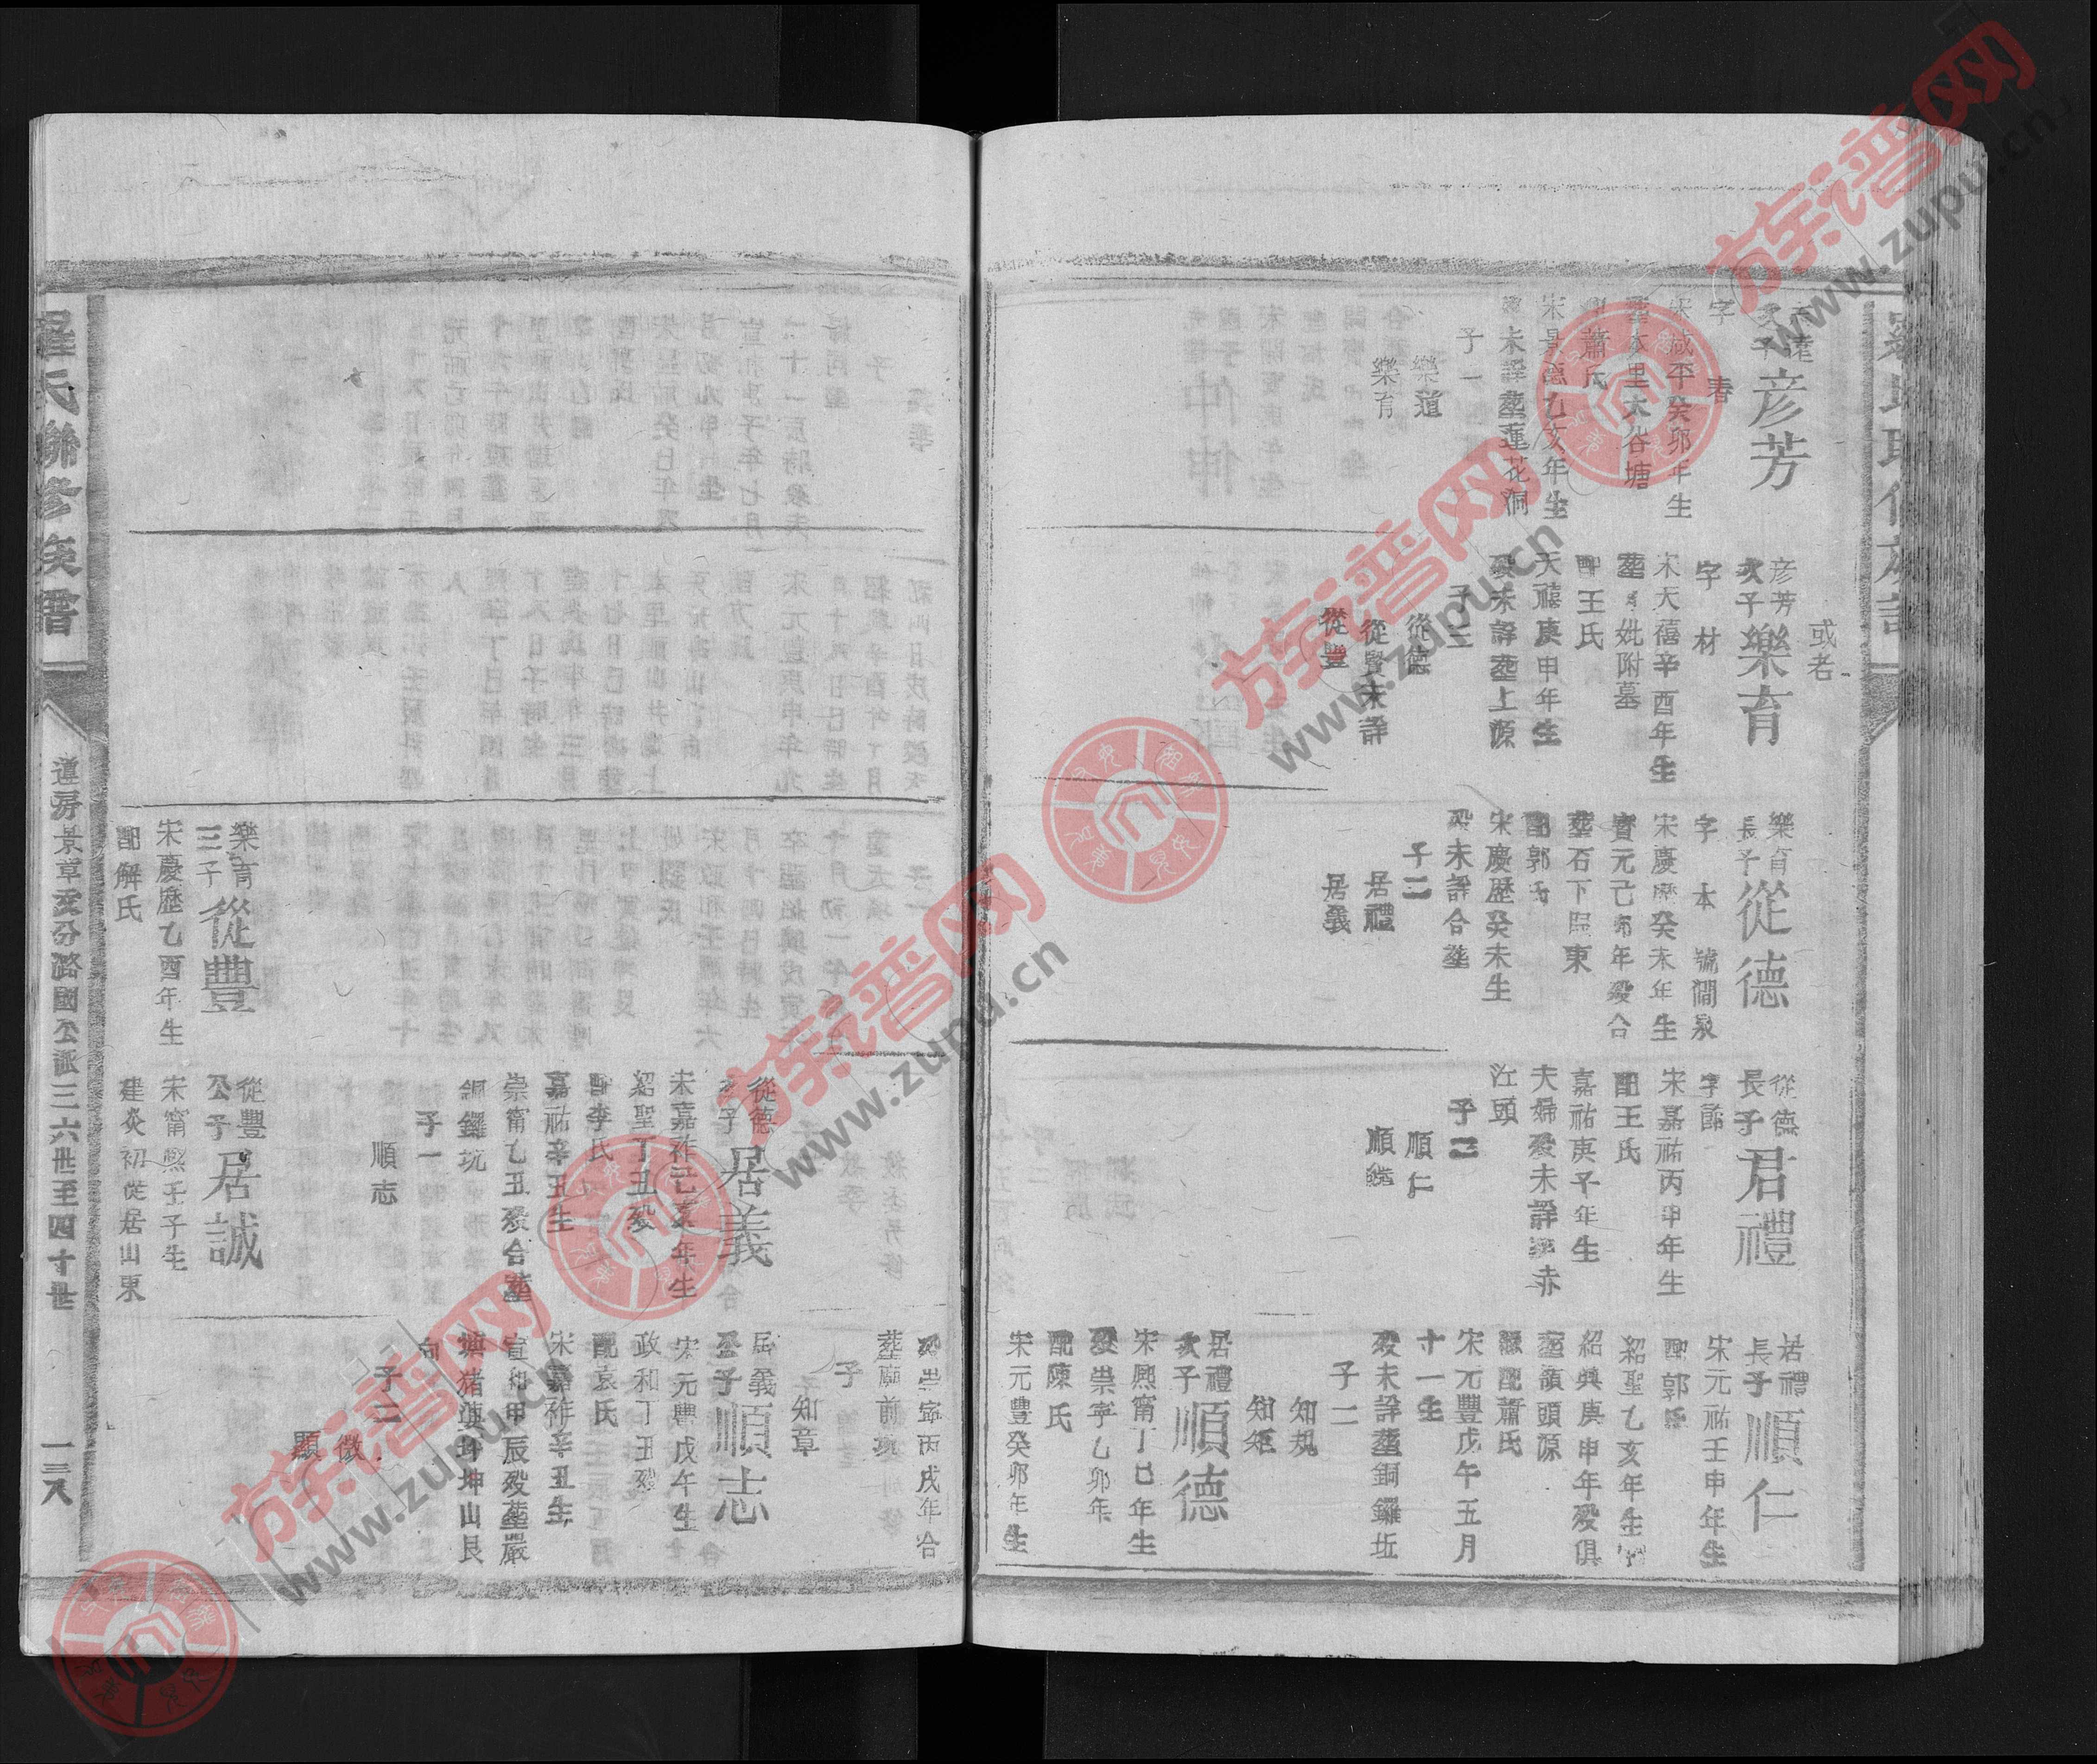 羅氏聯修族譜
次子彥芳
字春
宋咸平癸卯年生
葬本里大谷塘
蕭氏
宋景德乙亥年生
未詳葬蓮花洞
子一
樂道
樂育
或者
彥芳
次子樂育
字材
宋天禧辛酉年生
葬妣附墓
配王氏
天禧庚申年生
歿未詳葬上源
子三
從德
從賢未詳
從豐
樂育
長子從德
字本 號澗泉
宋慶歷癸未年生
寶元己卯年歿合
葬石下東
配郭氏
宋慶歷癸未生
歿未詳合葬
子二
居禮
居義
從德
長子君禮
字節
宋嘉祐丙申年生
配王氏
嘉祐庚子年生
夫婦歿未詳葬赤
江頭
子二
順仁
順德
居禮
長子順仁
宋元祐壬申年生
配郭氏
紹聖乙亥年生
紹興庚申年歿俱
葬嶺頭源
配蕭氏
宋元豐戊午五月
十一生
歿未詳葬銅鑼坵
子二
知規
知矩
居禮
次子順德
宋熙甯丁巳年生
歿崇寧乙卯年
配陳氏
宋元豐癸卯年生
歿崇寧丙戌年合
葬廟前
子
知章
從德
次子居義
宋嘉祚己亥年生
紹聖丁丑歿
配李氏
嘉祐辛丑生
崇甯乙丑歿合葬
銅鑼坑
子一
順志
居義
公子順志
宋元豐戊午生
政和丁丑歿
配袁氏
宋嘉祚辛丑生
宣和甲辰歿葬嚴
塘猪坤山艮
向
子二
徵
顯
樂育
三子從豐
宋慶歷乙酉年生
配解氏
從豐
公子居誠
宋甯熙壬子生
建炎初從居山東
羅氏聯修族譜
遵房景章爻分潞國公派三六世至四十世
一三八
族谱网
www.zupu.cn
族谱网
www.zupu.cn
族谱网
www.zupu.cn
族谱网
www.zupu.cn